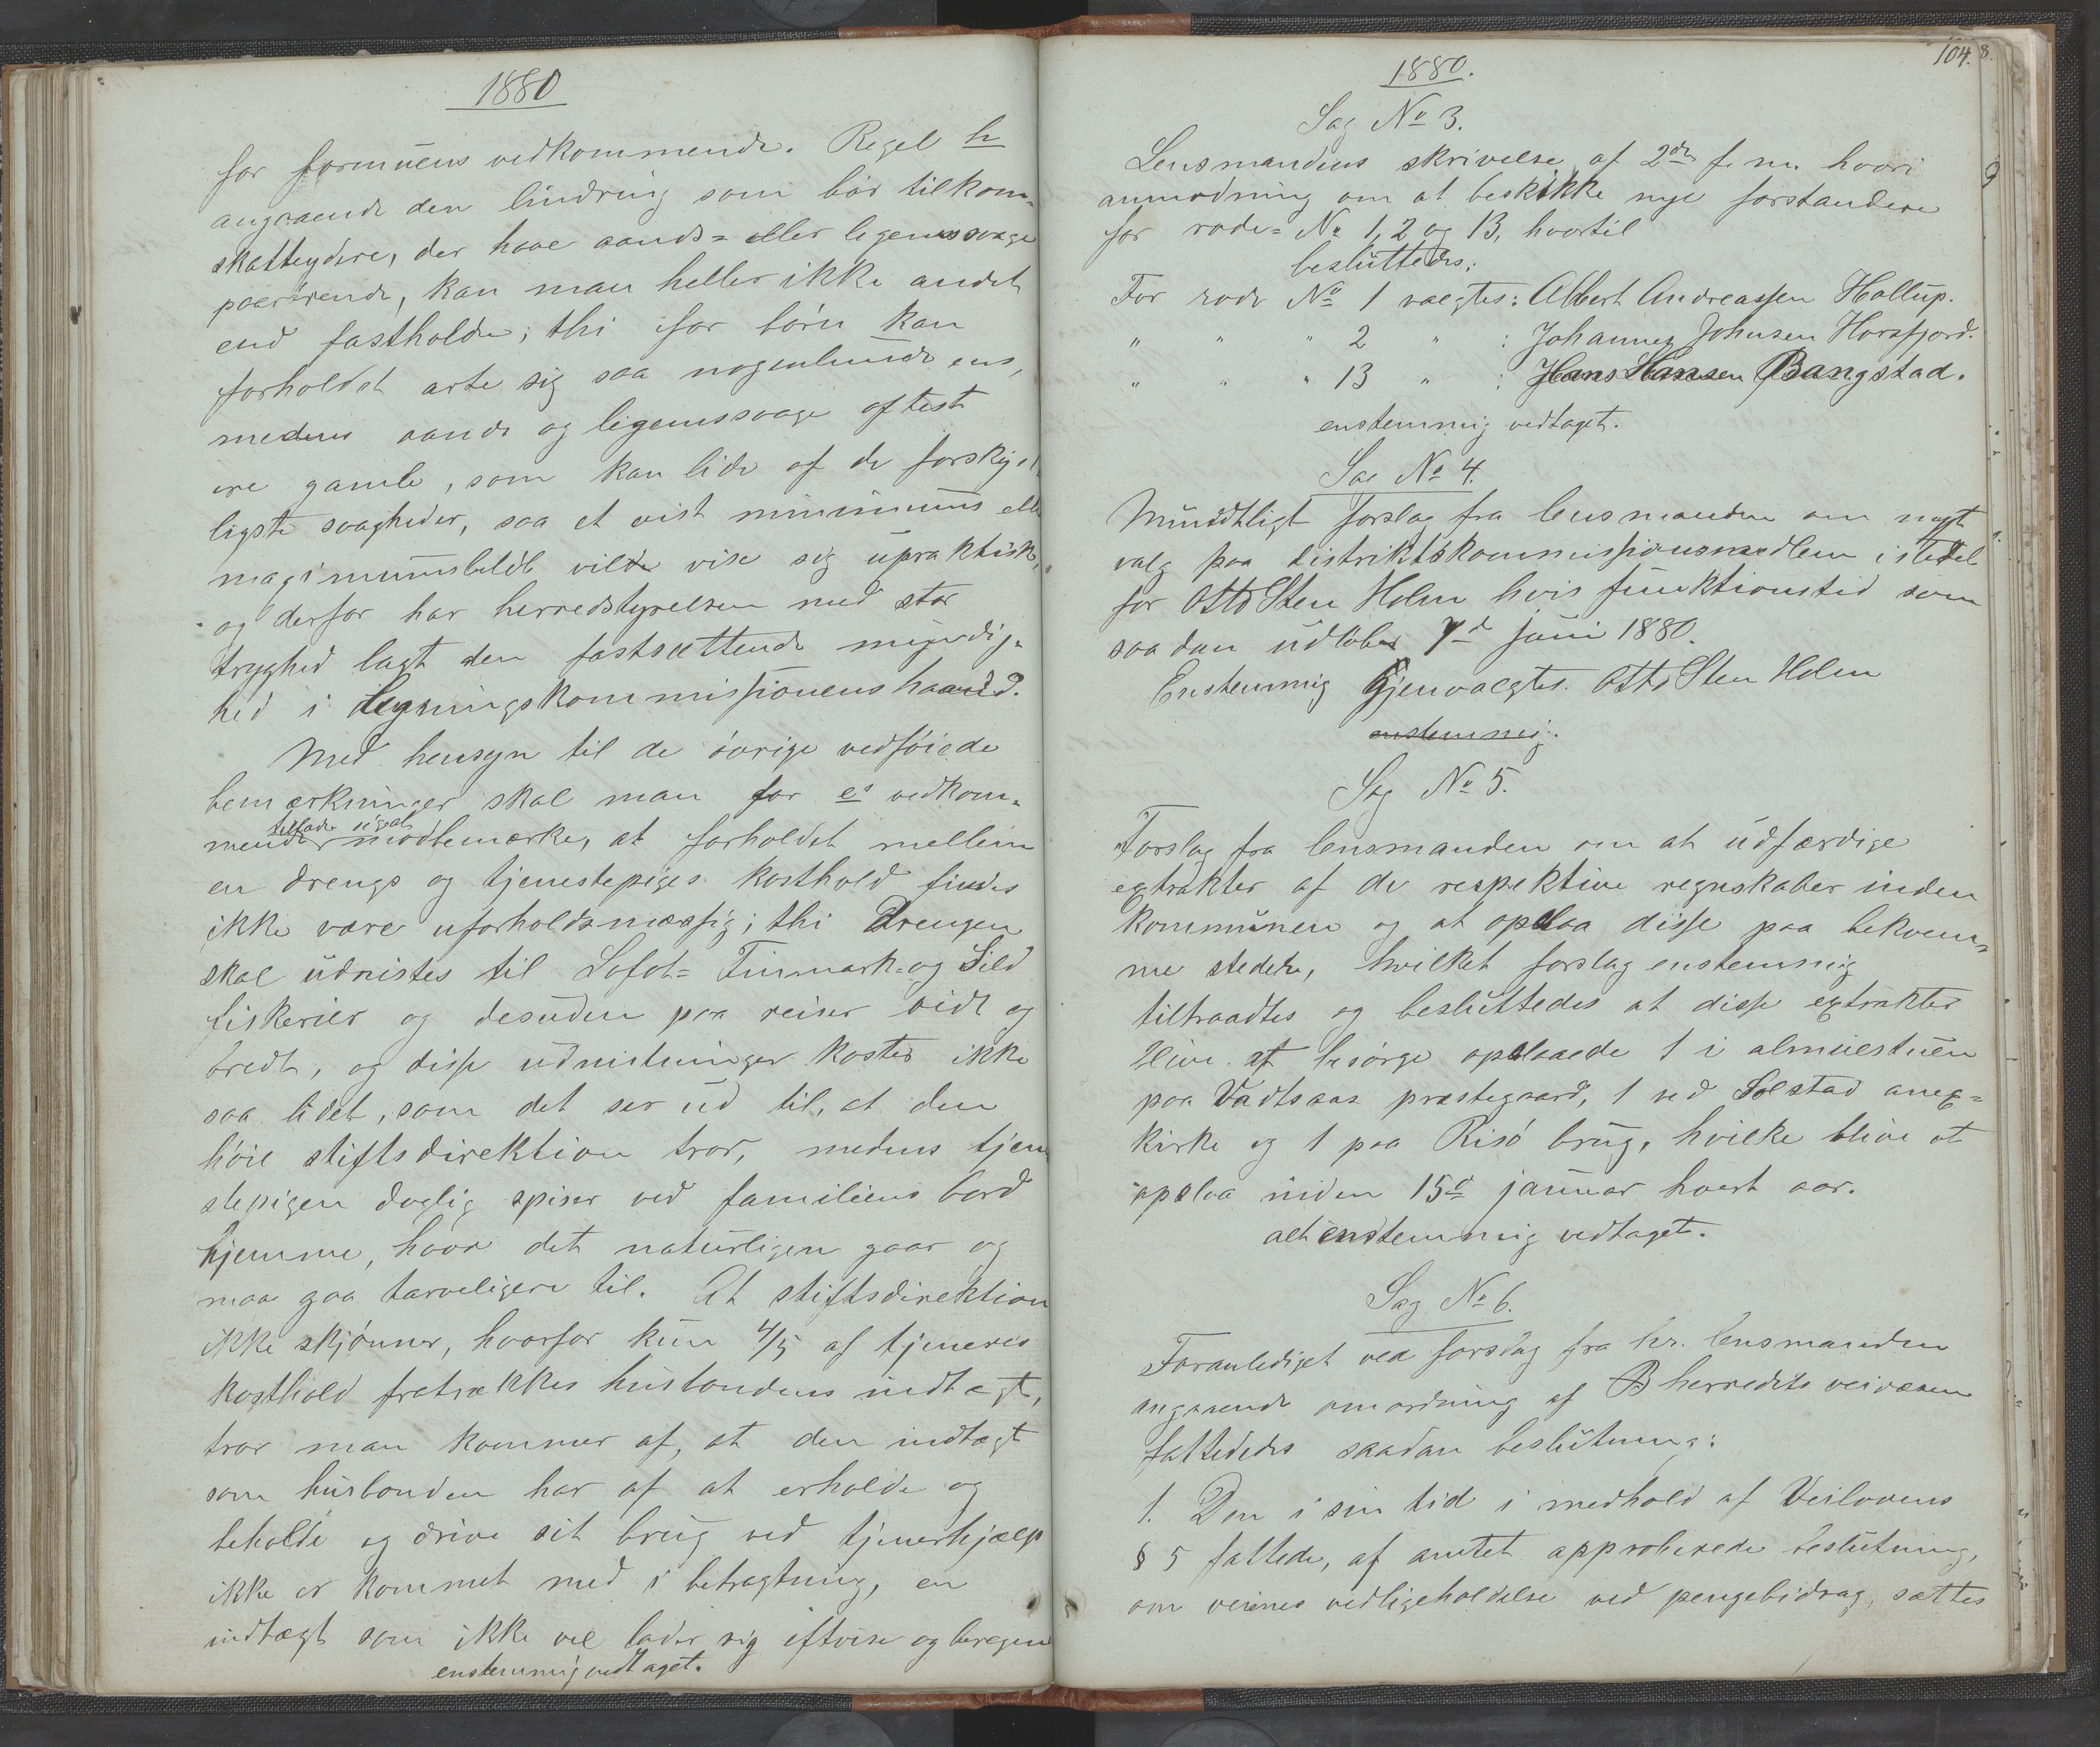 1880
for formuens vedkommende. Regel h
angaaende den lindring som bör tilkom-
skatteydere, der have aands- eller legemssvage
paarörende, kan man heller ikke andet
end fastholde; thi for börn kan
forholdet arte sig saa nogenlunde ens,
medens aands og legemssvage oftest
ere gamle, som kan lide af de forskjel-
ligste svagheder, saa et vist minimums eller
maximumsbelöb vilde vise sig upraktisk,
og derfor har herredstyrelsen med stor
tryghed lagt den fastsættende myndig-
hed i ligningskommissionens haand.
Med hensyn til de övrige vedföiede
bemærkninger skal man for es vedkom-
mende tillade sig at modbemærke, at forholdet mellem
en drengs og tjenestepiges kosthold findes
ikke være uforholdsmæssig; thi Drengen
skal udnistes til Lofot- Finmark- og Sild
fiskerier og desuden paa reiser vidt og
bredt, og disse udnistninger koster ikke
saa lidet, som det ser ud til, at den
höie stiftsdirektion tror, medens tjene
stepigen daglig spiser ved familiens bord
hjemme, hvor det naturligen gaar og
maa gaa tarveligere til. At stiftsdirektion
ikke skjönner, hvorfor kun 4/5 af tjeneres
kosthold fratrækkes husbondens indtægt,
tror man kommer af, at den indtægt
som husbonden har af at erholde og
beholde og drive sit brug ved tjenerhjælp
ikke er kommet med i betragtning, en
indtægt som ikke vel lader sig eftvise og beregne
enstemmig vedtaget.
104. 8.
1880.
Sag No 3.
Lensmandens skrivelse af 2den f. m. hvori
anmodning om at beskikke nye forstandere
for rode- No 1, 2 og 13, hvortil
besluttedes:
For rode No 1 valgtes: Albert Andreassen Hallup.
" " " 2 " : Johannes Johnsen Horsfjord.
" " " 13 " : Hans Hansen Bangstad.
enstemmig vedtaget.
Sag No 4.
Mundtligt forslag fra lensmanden om nyt
valg paa distriktskommissionsmedlem istedet
for Otto Sten Holm hvis funktionstid som
saadan udlöber 7de juni 1880.
Enstemmig Gjenvalgtes Otto Sten Holm
enstemmig.
Sag No 5.
Forslag fra lensmanden om at udfærdige
extrakter af de respektive regnskaber inden
kommunen og at opslaa disse paa bekvem-
me steder, hvilket forslag enstemmig
tiltraadtes og besluttedes at disse extrakter
blive at besörge opslaaede 1 i almuestuen
paa Vadtsaas præstegaard, 1 ved Solstad anex-
kirke og 1 paa Risö brug, hvilke blive at
opslaa inden 15d januar hvert aar.
alt enstemmig vedtaget.
Sag No 6.
Foranlediget ved forslag fra hr. lensmanden
angaaende omordning af B herredets veivæsen
fattedes saadan beslutning:
1. Den i sin tid i medhold af Veilovens
§ 5 fattede, af amtet approberede beslutning,
om veienes vedligeholdelse ved pengebidrag, sættes